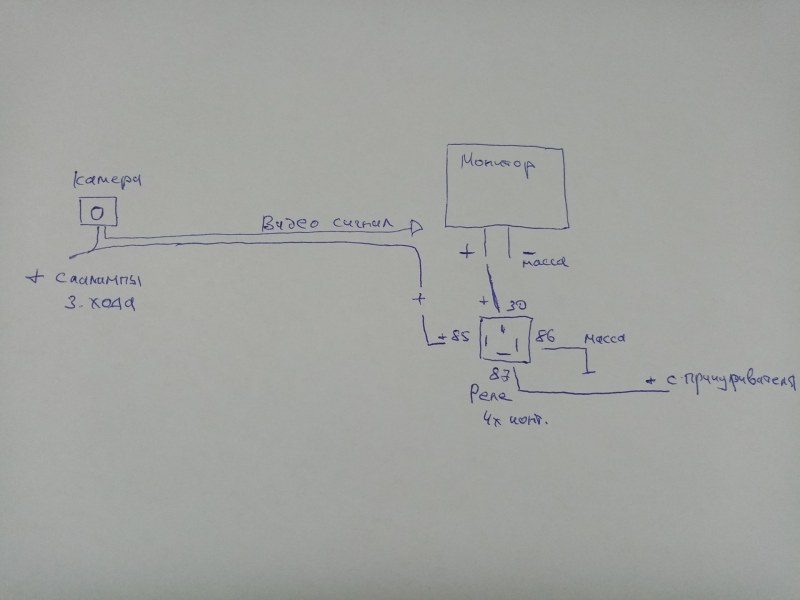 камера
Монитор
Видео сигнал
+
-
масса
+ с лампы
З. хода
+
+ 30
+ 85
86
масса
87
+ с прикуривателя
Реле
4х конт.